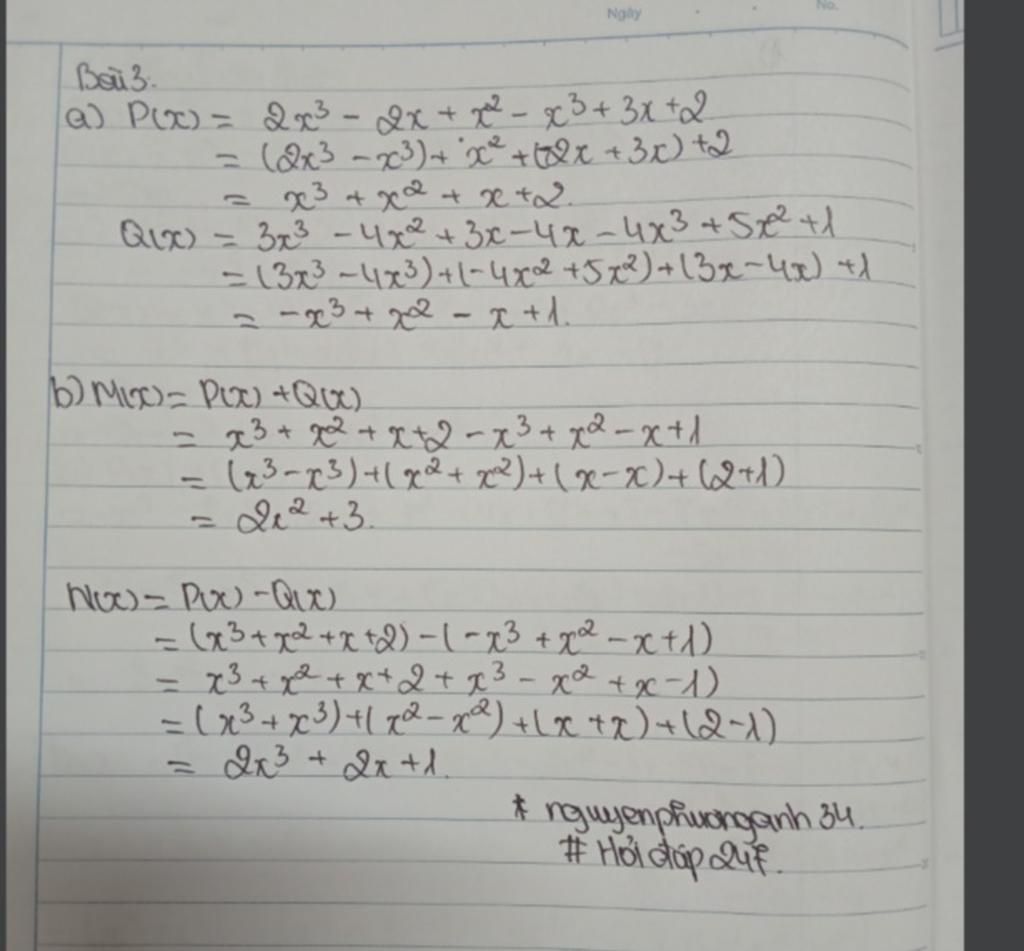 Ngày
No.
Bài 3.
a) P(x) = 2x³ - 2x + x² - x³ + 3x + 2
= (2x³ - x³) + x² + (-2x + 3x) + 2
= x³ + x² + x + 2.
Q(x) = 3x³ - 4x² + 3x - 4x - 4x³ + 5x² + 1
= (3x³ - 4x³) + (-4x² + 5x²) + (3x - 4x) + 1
= -x³ + x² - x + 1.
b) M(x) = P(x) + Q(x)
= x³ + x² + x + 2 - x³ + x² - x + 1
= (x³ - x³) + (x² + x²) + (x - x) + (2 + 1)
= 2x² + 3.
N(x) = P(x) - Q(x)
= (x³ + x² + x + 2) - (-x³ + x² - x + 1)
= x³ + x² + x + 2 + x³ - x² + x - 1)
= (x³ + x³) + (x² - x²) + (x + x) + (2 - 1)
= 2x³ + 2x + 1.
* nguyenphuonganh 34.
# Hỏi đáp 247.